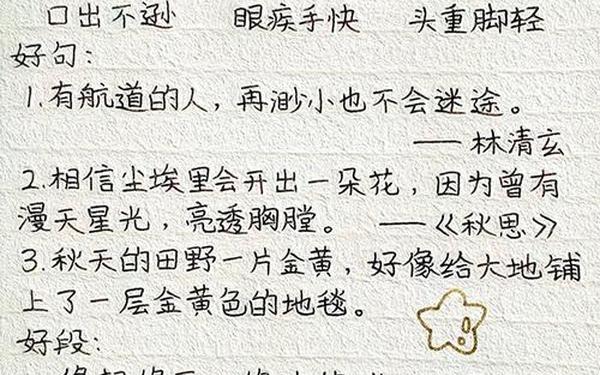 口出不逊 眼疾手快 头重脚轻
好句:
1.有航道的人，再渺小也不会迷途。
——林清玄
2.相信尘埃里会开出一朵花，因为曾有
漫天星光，亮透胸膛。 ——《秋思》
3.秋天的田野一片金黄，好像给大地铺
上了一层金黄色的地毯。
好段: